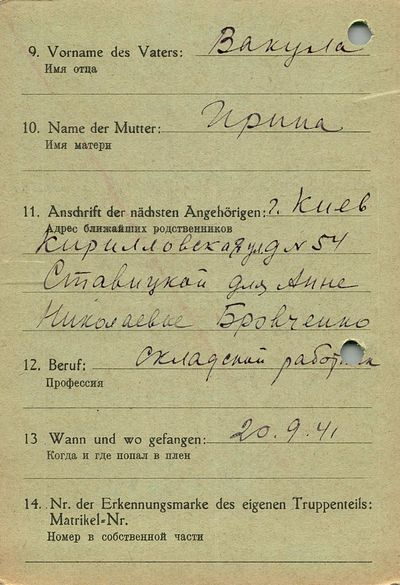 9. Vorname des Vaters: Вакула
Имя отца
10. Name der Mutter: Ирина
Имя матери
11. Anschrift der nächsten Angehörigen: г. Киев
Адрес ближайших родственников
Кирилловская ул д № 54
Ставицкой для Анне
Николаевне Бровченко
12. Beruf: складской работник
Профессия
13 Wann und wo gefangen: 20.9.41
Когда и где попал в плен
14. Nr. der Erkennungsmarke des eigenen Truppenteils:
Matrikel=Nr.
Номер в собственной части